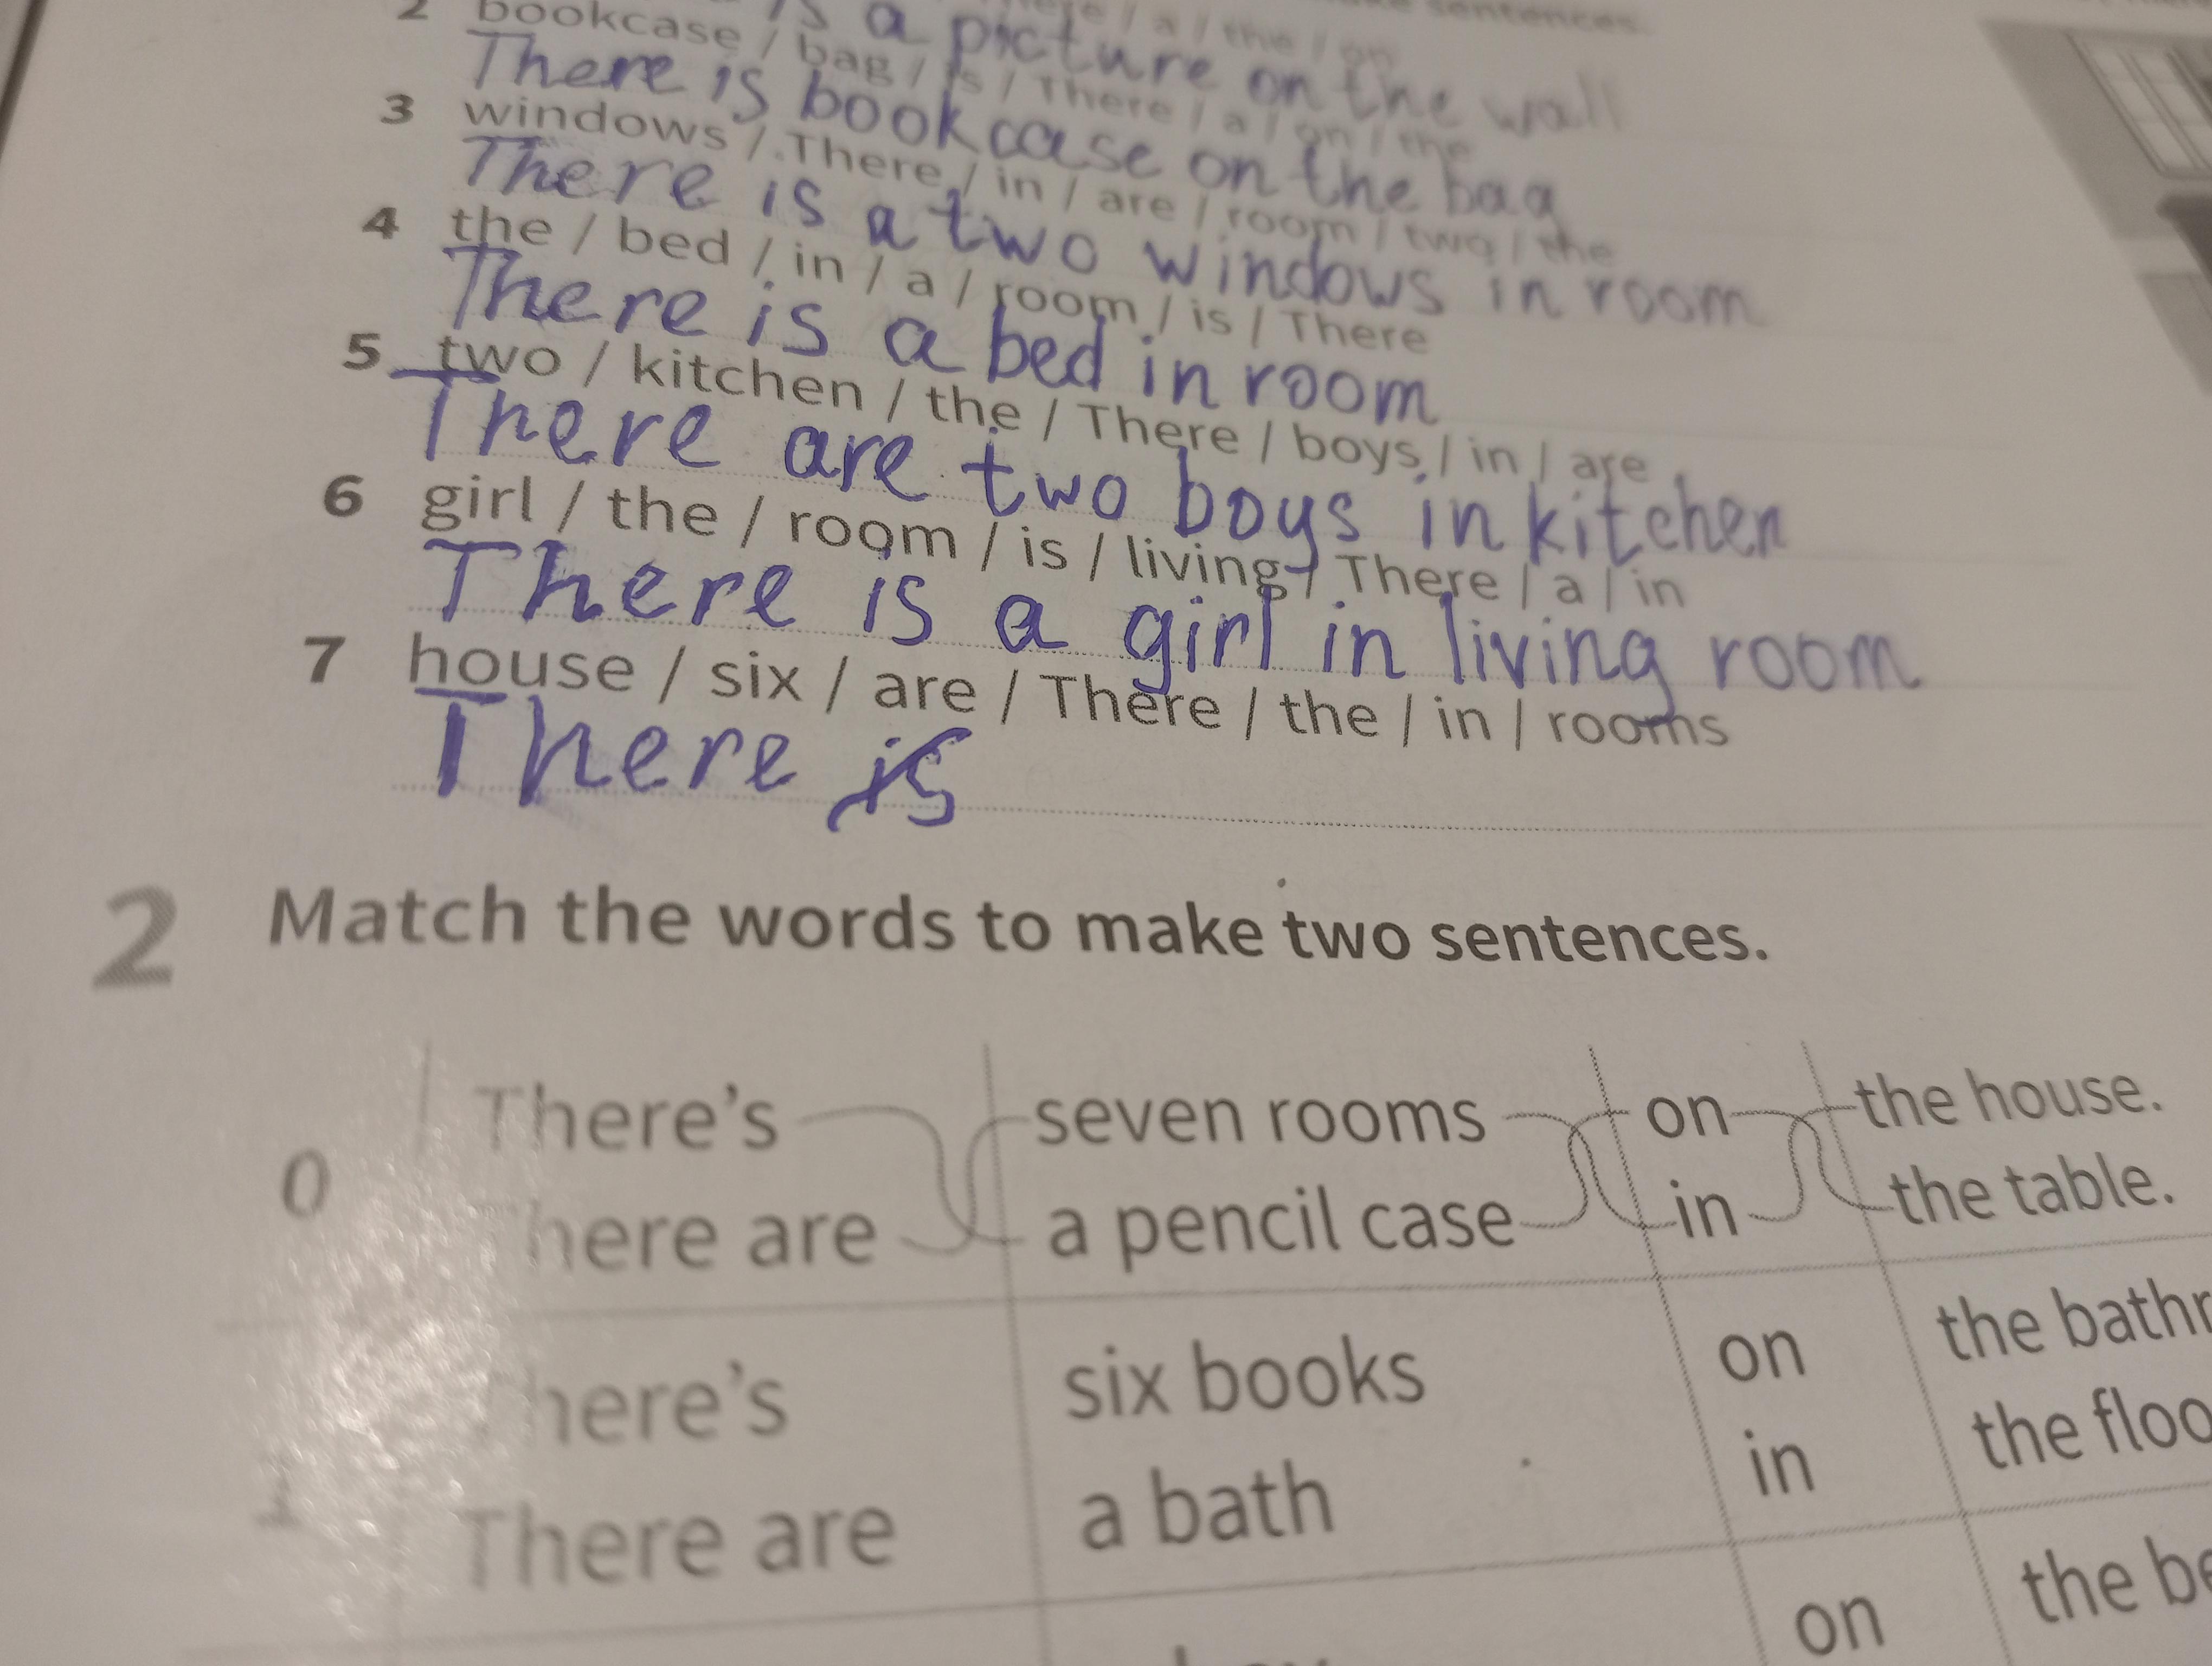 sentences.
is a picture on the wall
2 bookcase / bag / is / There / a / on / the
There is bookcase on the bag
3 windows / There / in / are / room / two / the
There is a two windows in room
4 the / bed / in / a / room / is / There
There is a bed in room
5 two / kitchen / the / There / boys / in / are
There are two boys in kitchen
6 girl / the / room / is / living / There / a / in
There is a girl in living room
7 house / six / are / There / the / in / rooms
There is
2 Match the words to make two sentences.
0 There's seven rooms on the house.
There are a pencil case in the table.
1 There's six books on the bathr
There are a bath in the floo
on the be